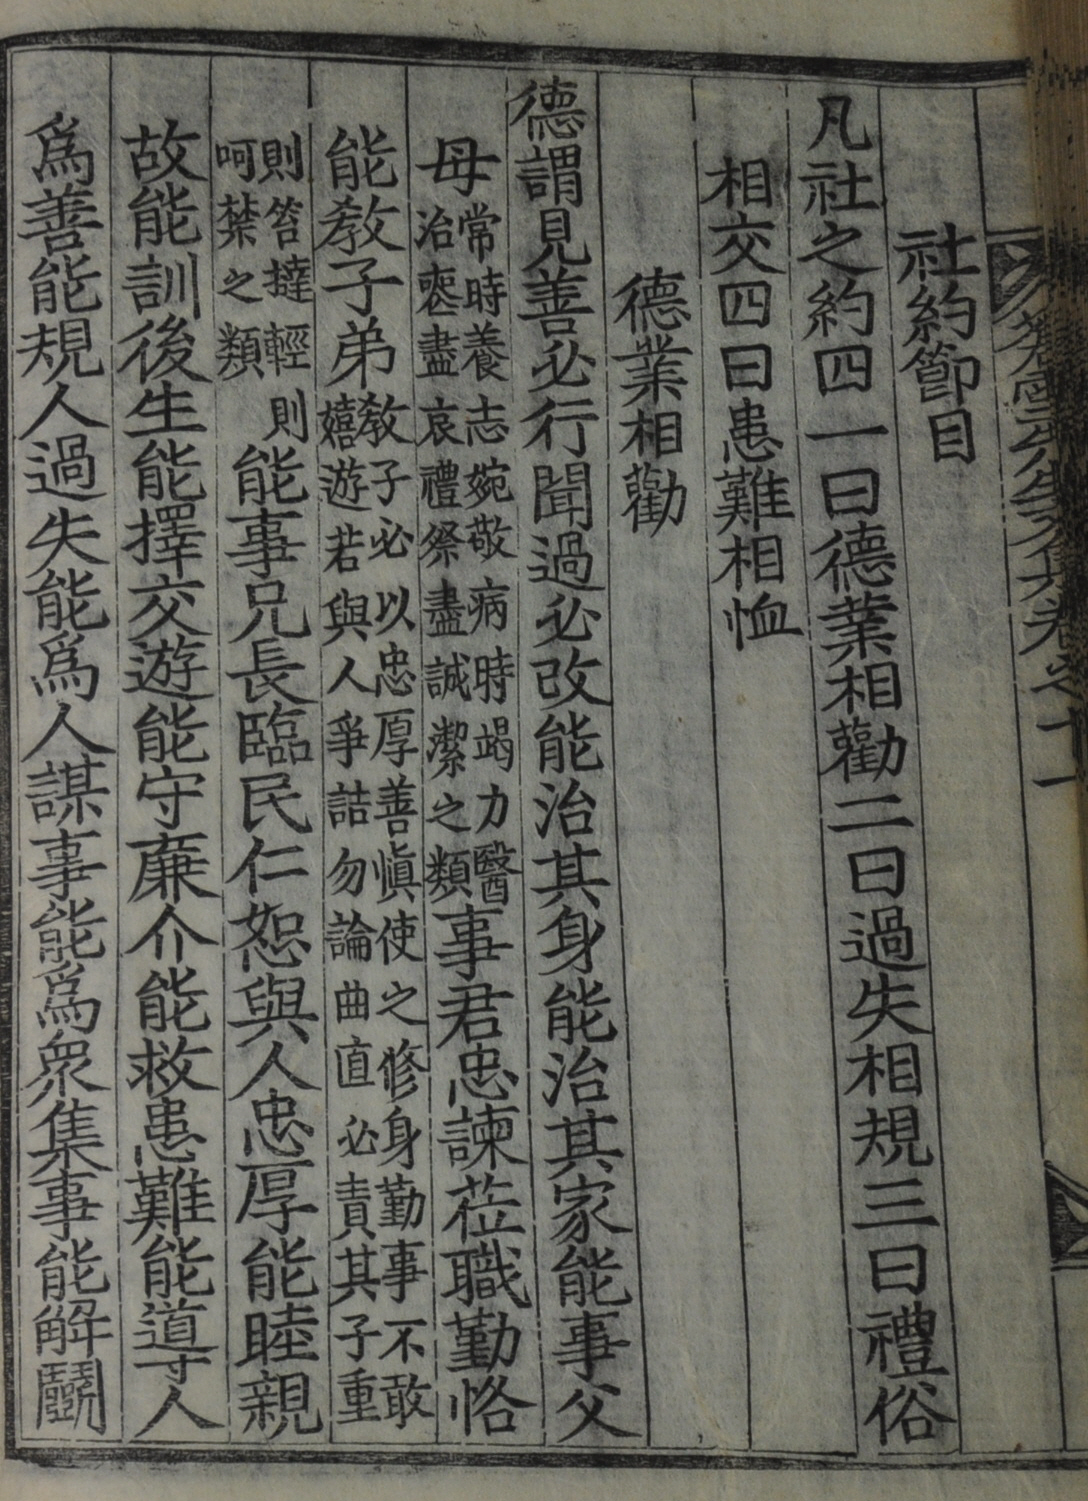 社約節目
凡社之約四一曰德業相勸二曰過失相規三曰禮俗
相交四曰患難相恤
德業相勸
德謂見善必行聞過必改能治其身能治其家能事父
母
常時養志婉敬病時竭力醫
治喪盡哀禮祭盡誠潔之類
事君忠諫莅職勤恪
能教子弟
教子必以忠厚善愼使之修身勤事不敢
嬉遊若與人爭詰勿論曲直必責其子重
則笞撻輕則
呵禁之類
能事兄長臨民仁恕與人忠厚能睦親
故能訓後生能擇交遊能守廉介能救患難能導人
爲善能規人過失能爲人謀事能爲衆集事能解鬪
先生文集卷之十一